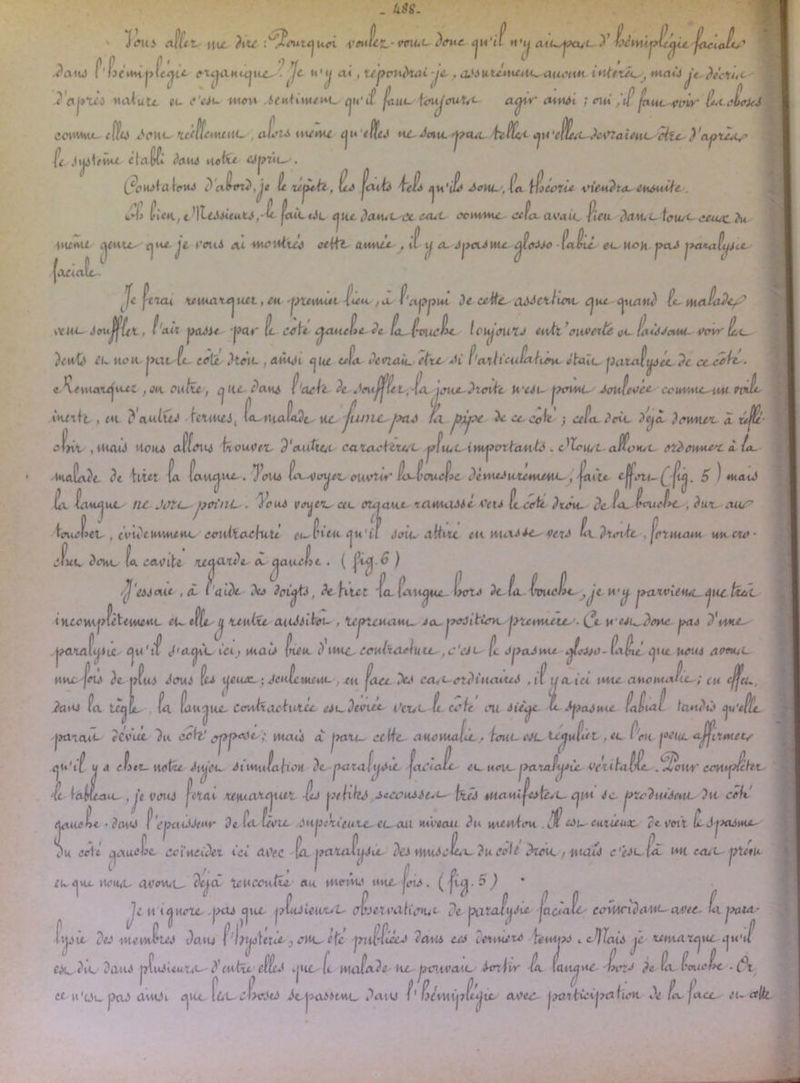 _ 488._
Vous allez me dire : Pourquoi voulez-vous donc qu'il n'y ait pas d'hémiplégie faciale
dans l'hémiplégie organique ? Je n'y ai, répondrai-je, assurément aucun intérêt, mais je décris
d'après nature et c'est mon sentiment qu'il faut toujours agir ainsi ; oui, il faut voir les choses
comme elles sont réellement, alors même qu'elles ne sont pas telles qu'elles devraient être d'après
le système établi dans notre esprit.
Constatons d'abord, je le répète, les faits tels qu'ils sont, la théorie viendra ensuite.
Eh bien, Messieurs, le fait est que dans ce cas comme cela avait lieu dans tous ceux du
même genre que je vous ai montrés cette année, il y a spasme glosso-labié et non pas paralysie
faciale.
Je ferai remarquer, en premier lieu, à l'appui de cette assertion que quand le malade
veut souffler, l'air passe par le côté gauche de la bouche toujours entr'ouverte et laissant voir les
dents et non par le côté droit, ainsi que cela devrait être si l'articulation était paralysée de ce côté.
Remarquez, en outre, que dans l'acte de souffler, la joue droite n'est point soulevée comme un voile
inerte, en d'autres termes, la malade ne fume pas la pipe de ce côté ; cela doit déjà donner à réflé-
chir, mais nous allons trouver d'autres caractères plus importants. Nous allons ordonner à la
malade de tirer la langue. Vous la voyez ouvrir la bouche démesurément, faire effort (fig. 5) mais
la langue ne sort point. Vous voyez cet organe ramassé vers le côté droit de la bouche, dur au
toucher, évidemment contracturé et bien qu'il soit attiré en masse vers la droite, formant un cro-
chet dont la cavité regarde à gauche. (fig. 6)
J'essaie, à l'aide des doigts, de tirer la langue hors de la bouche, je n'y parviens que très
incomplètement et elle y rentre aussitôt, reprenant sa position première. Ce n'est donc pas d'une
paralysie qu'il s'agit ici, mais bien d'une contracture, c'est le spasme glosso-labié que nous avons
une fois de plus sous les yeux ; seulement, en face des cas ordinaires, il y a ici une anomalie ; en effet,
dans la règle, la langue contracturée est déviée vers le côté où siège le spasme labial tandis qu'elle
paraît déviée du côté opposé ; mais à part cette anomalie, tout est régulier, et l'on peut affirmer
qu'il y a chez notre sujet simulation de paralysie faciale et non paralysie véritable. Pour compléter
le tableau, je vous ferai remarquer les petites secousses très manifestes qui se produisent du côté
gauche dans l'épaisseur de la lèvre supérieure et au niveau du menton. Il est curieux de voir le spasme
du côté gauche coïncider ici avec la paralysie des muscles du côté droit, mais c'est là un cas prévu
et que nous avons déjà rencontré au moins une fois. (fig. 5)
Je n'ignore pas que plusieurs observations de paralysie faciale coïncidant avec la para-
lysie des membres dans l'hystérie, ont été publiées dans ces derniers temps. Mais je remarque qu'il
est dit dans plusieurs d'entre elles que le malade ne pouvait sortir la langue hors de la bouche. Or
ce n'est pas ainsi que les choses se passent dans l'hémiplégie avec participation de la face et celle